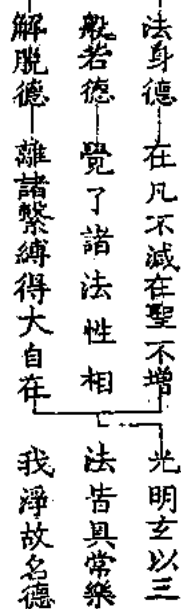 法身德 在凡不減在聖不增
般若德 覺了諸法性相
解脫德 離諸繫縛得大自在
光明玄以三
法皆具常樂
我淨故名德